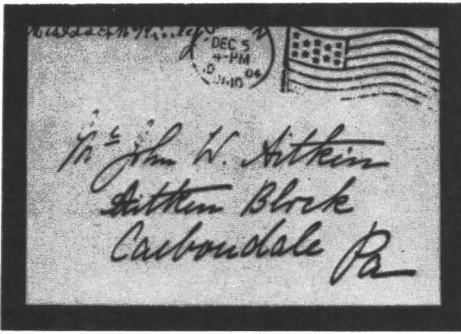 DEC 5
4-PM
04
OHIO
Mr John W. Aitkin
Aitken Block
Carbondale Pa